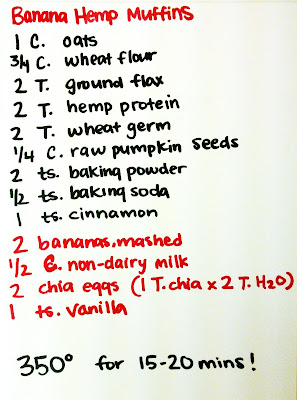 Banana Hemp Muffins
1 C. oats
3/4 C. wheat flour
2 T. ground flax
2 T. hemp protein
2 T. wheat germ
1/4 C. raw pumpkin seeds
2 ts. baking powder
1/2 ts. baking soda
1 ts. cinnamon
2 bananas, mashed
1/2 C. non-dairy milk
2 chia eggs (1 T. chia x 2 T. H2O)
1 ts. vanilla
350° for 15-20 mins!